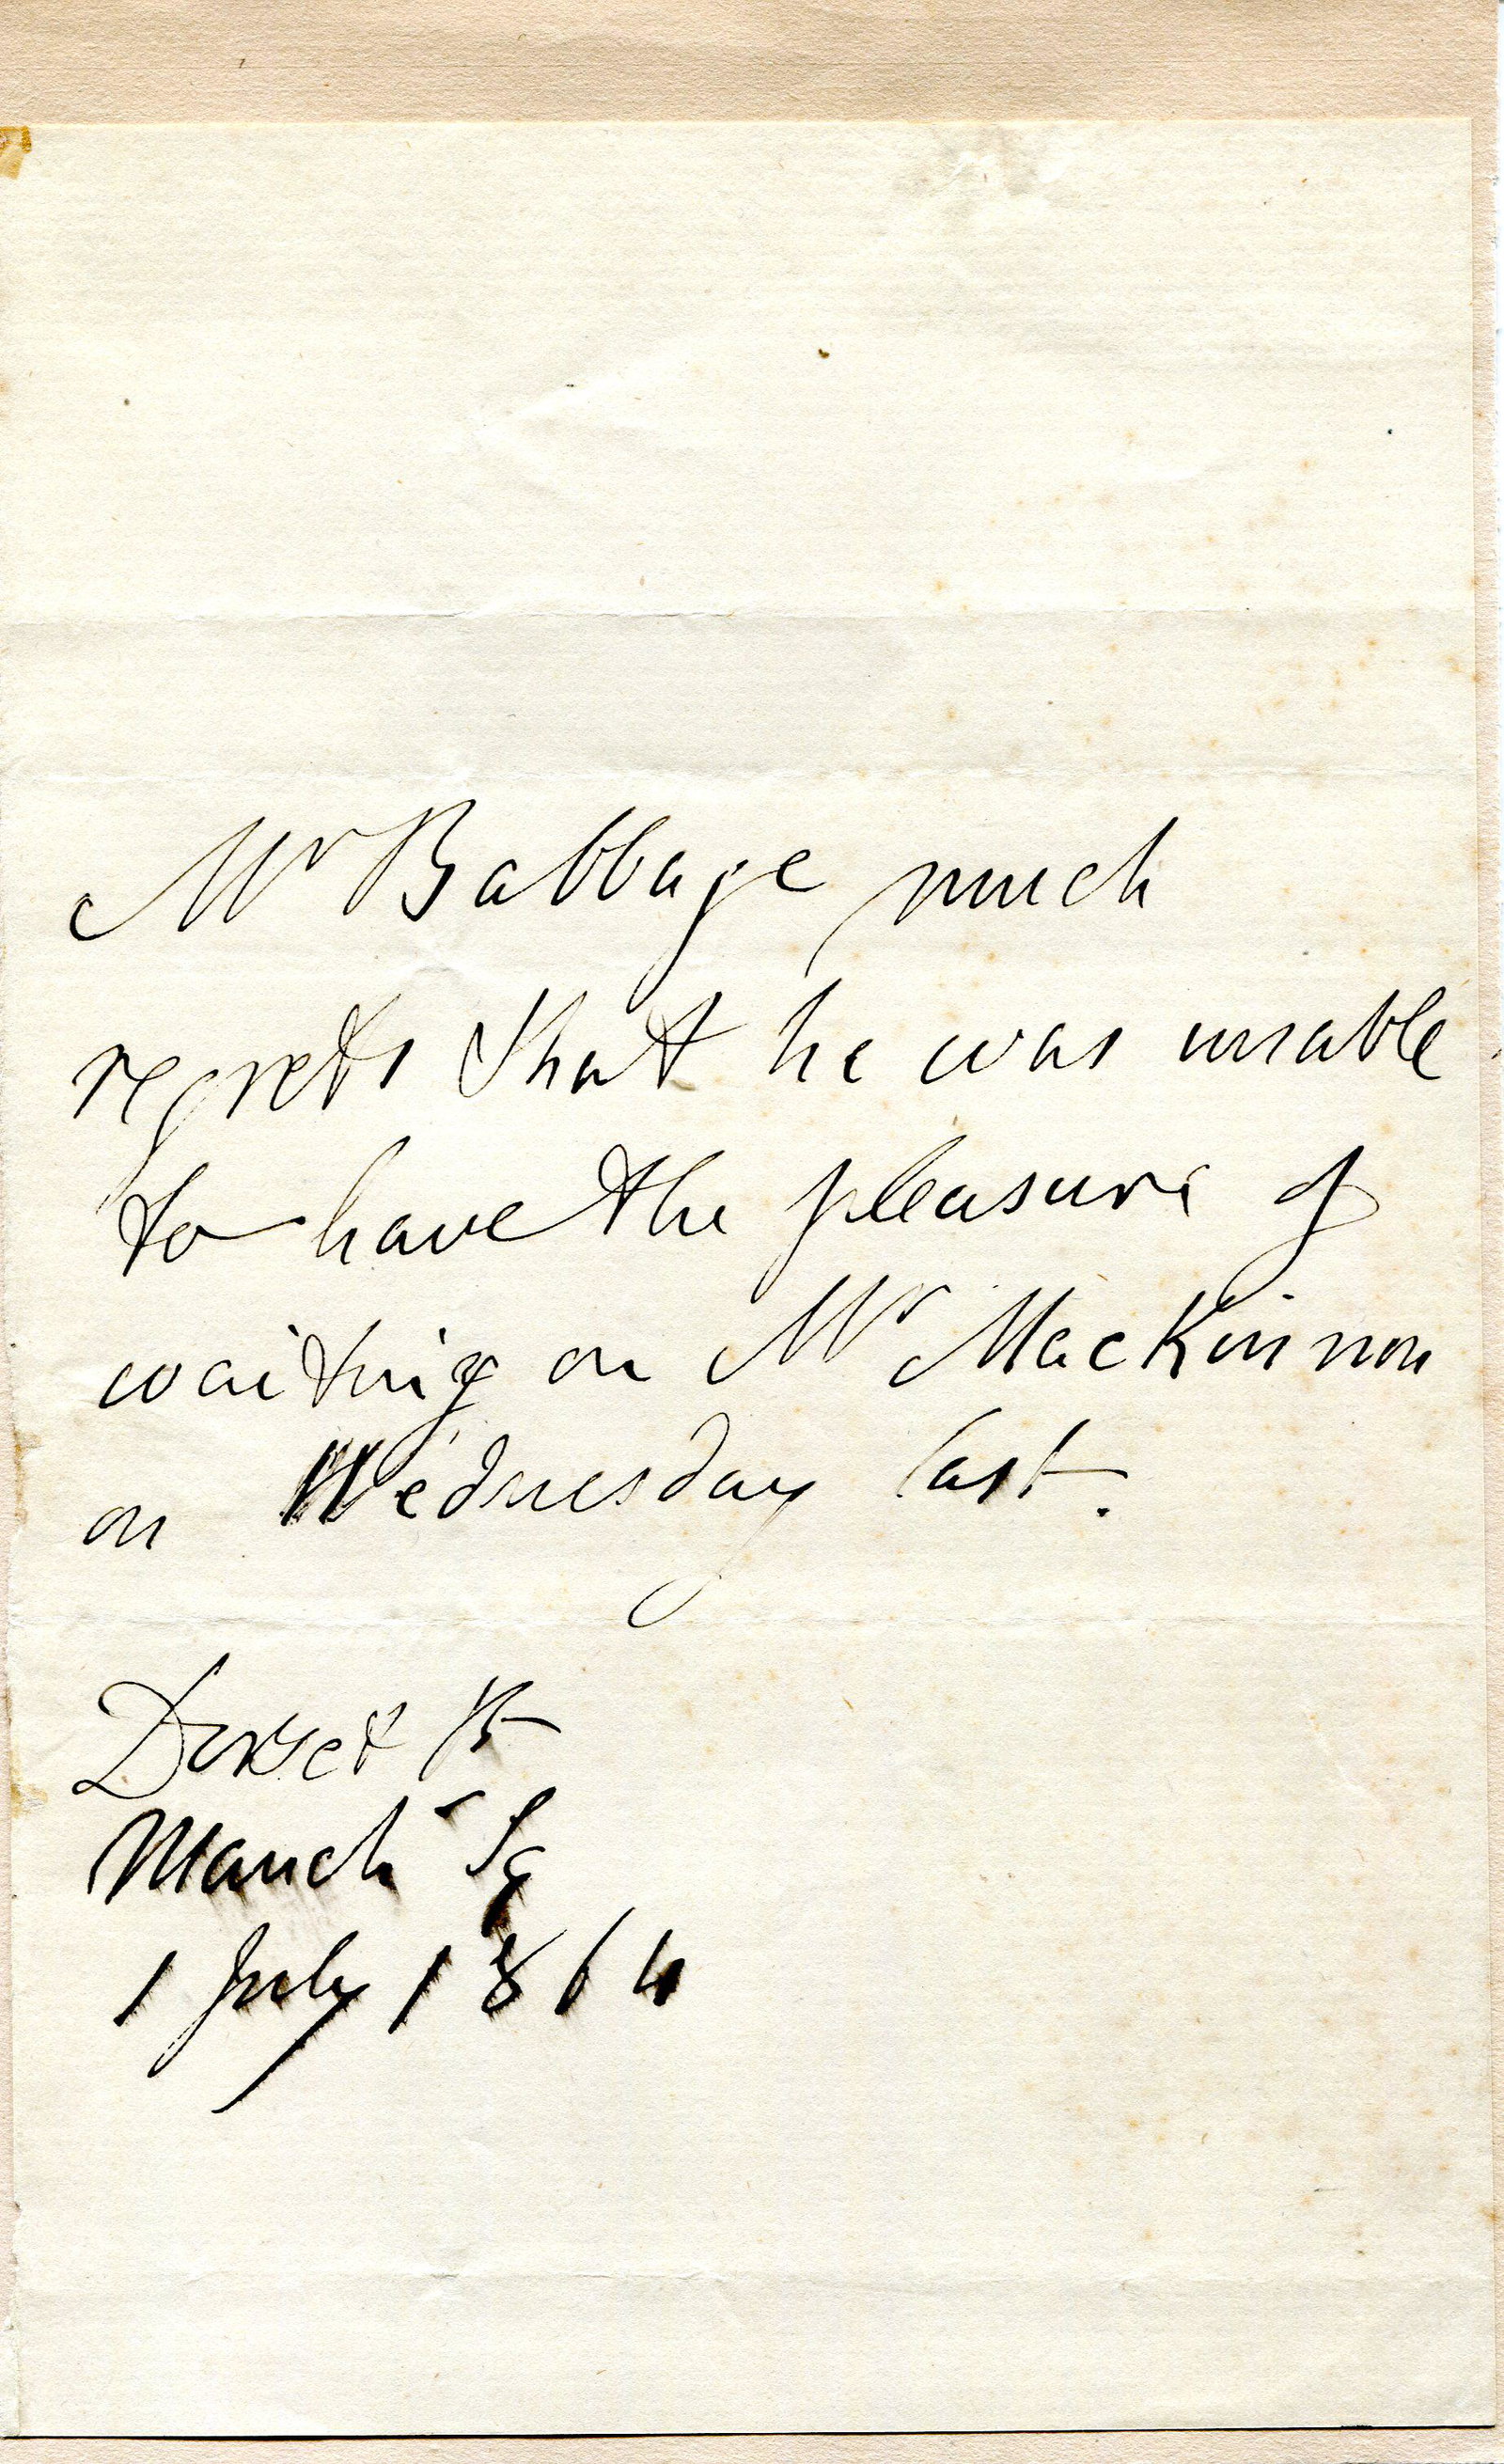 Mr Babbage much
regrets that he was unable
to have the pleasure of
waiting on Mr MacKinnon
on Wednesday last.
Dorset St
Manch r Sq
1 July 1864